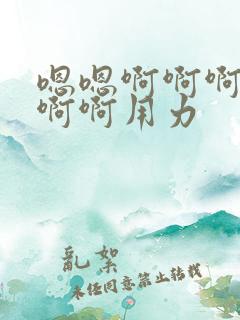 嗯嗯啊啊啊
啊啊用力
亂絮
未经同意禁止转载